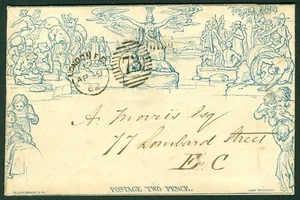 LONDON
AP 9
62
73
A. Morris Esq
77 Lombard Street
E.C
POSTAGE TWO PENCE.